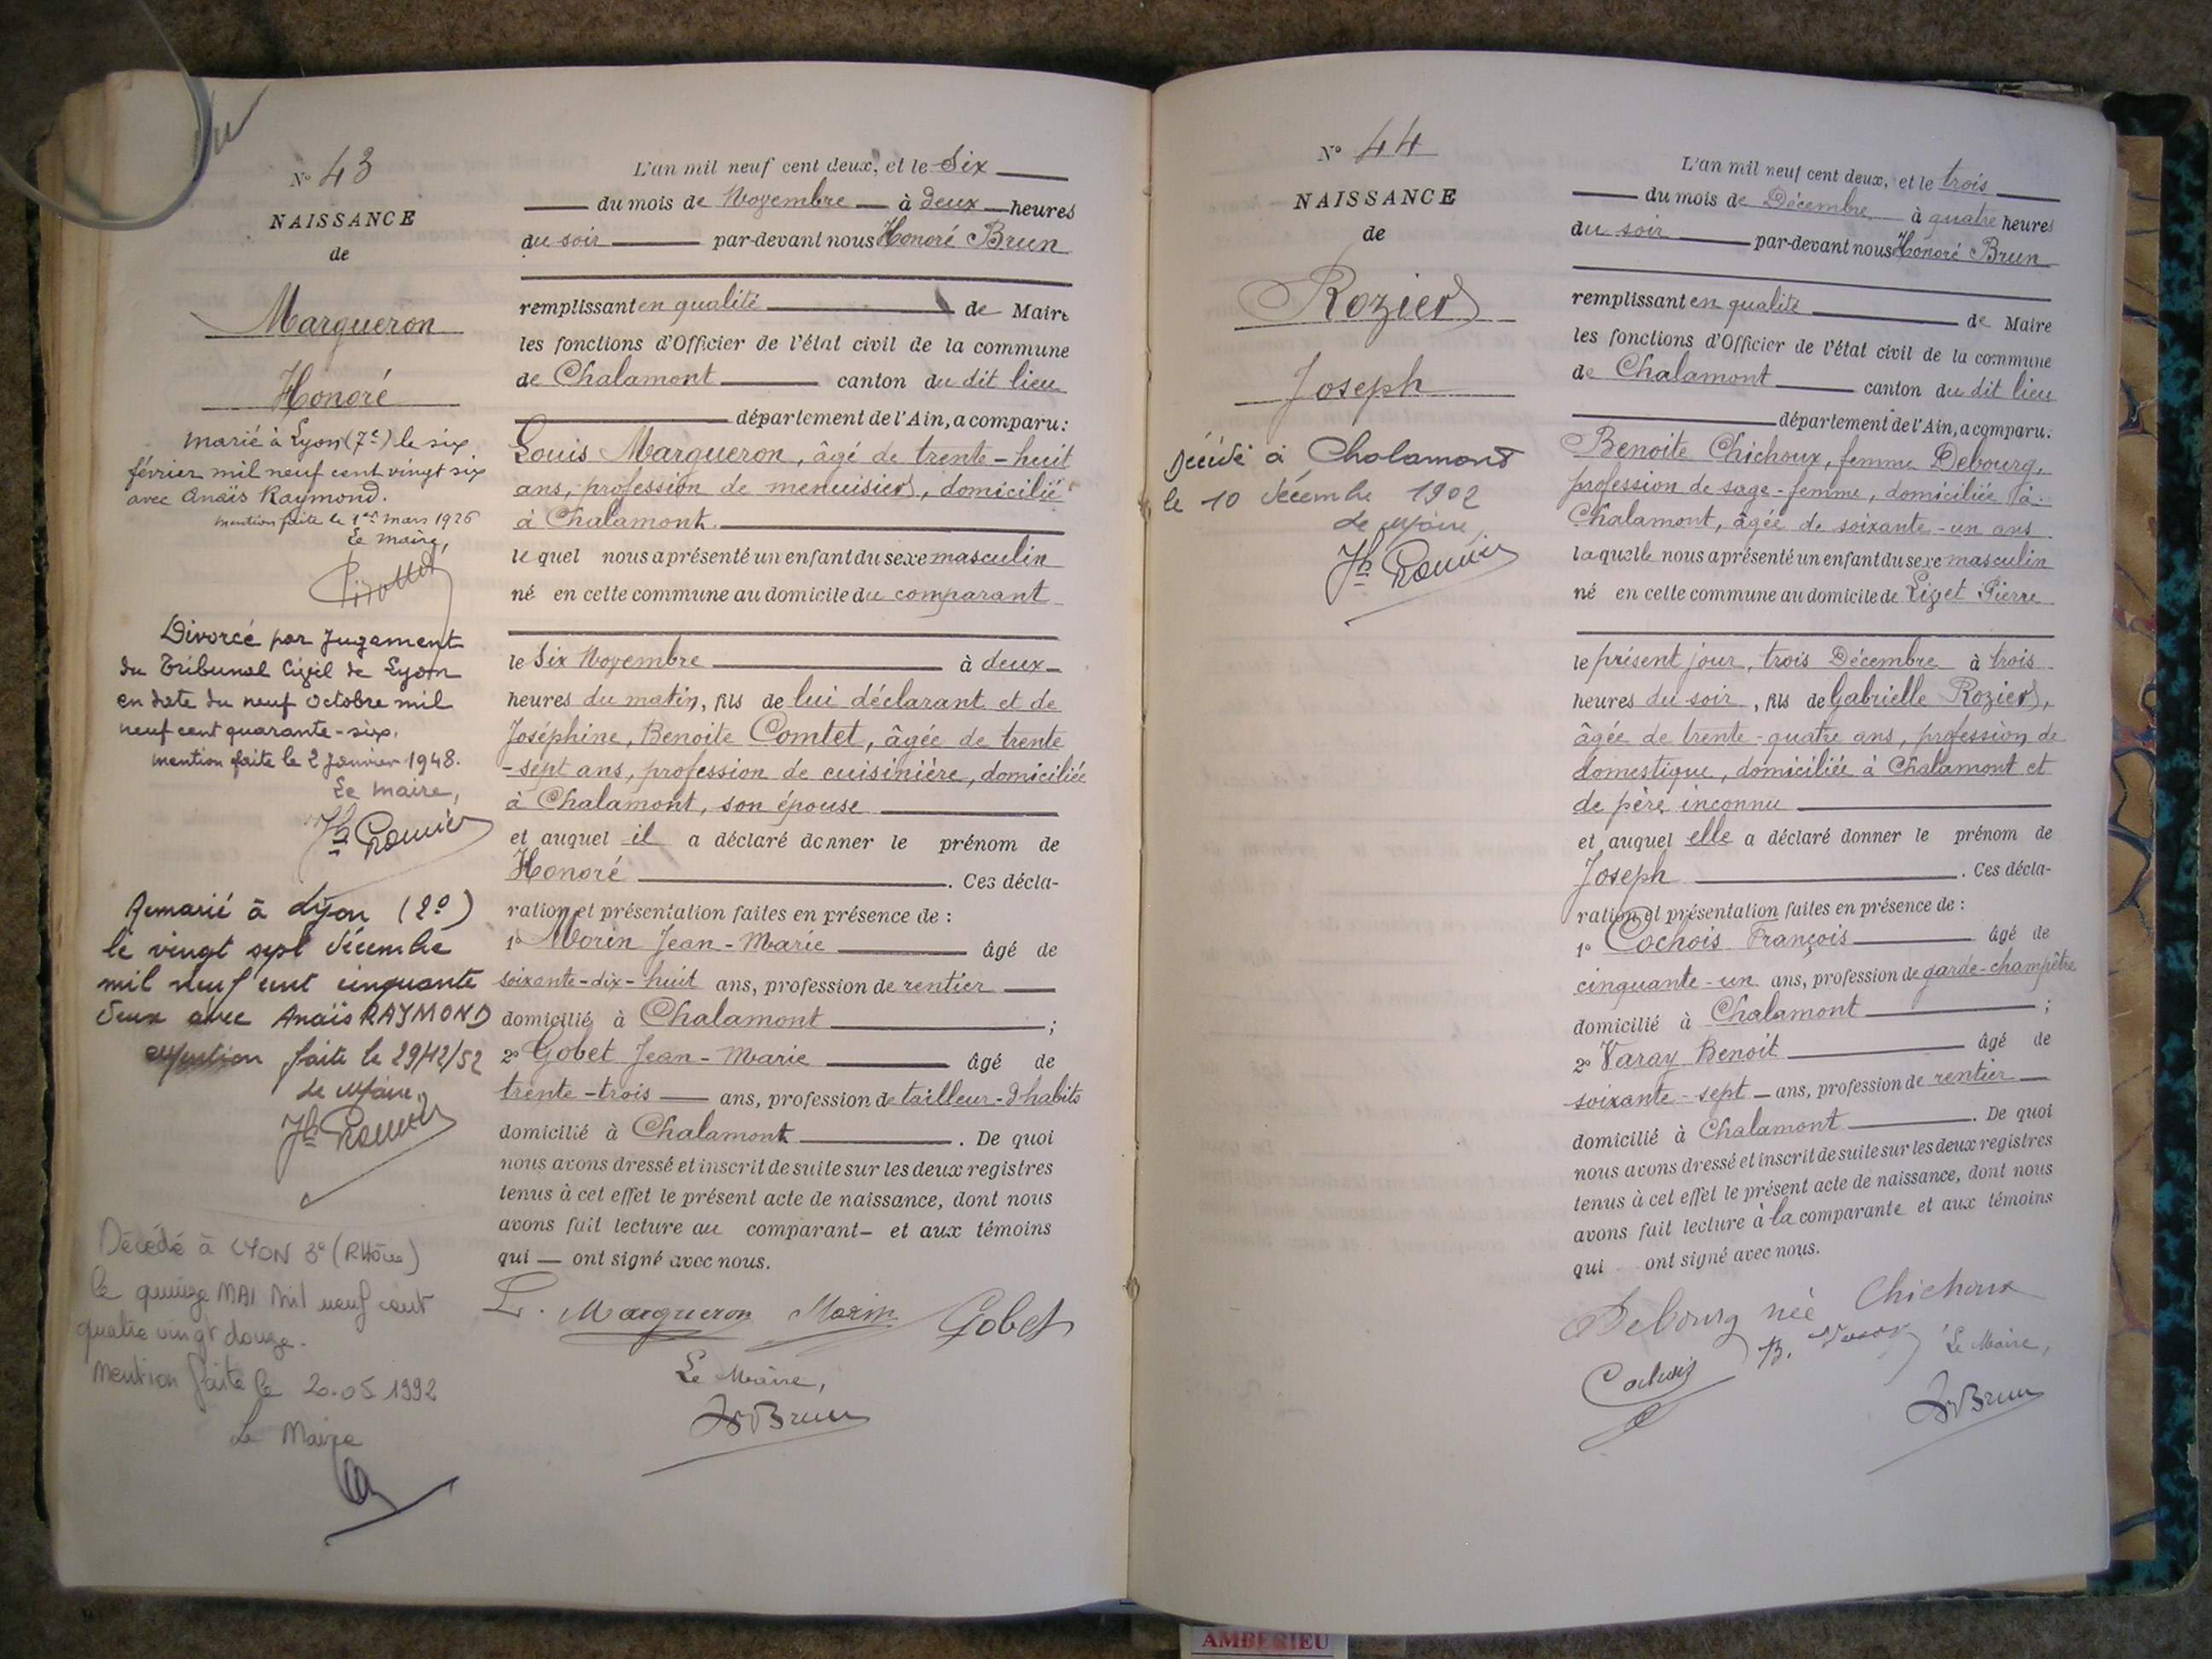 N° 43
NAISSANCE
de
Margueron
Honoré
marié à Lyon (7e) le six
février mil neuf cent vingt six
avec Anaïs Raymond.
mention faite le 1er mars 1926
Le maire,
Divorcé par Jugement
du Tribunal Civil de Lyon
en date du neuf Octobre mil
neuf cent quarante-six.
mention faite le 2 Janvier 1948.
Le maire,
Remarié à Lyon (2e)
le vingt sept décembre
mil neuf cent cinquante
deux avec Anaïs RAYMOND
Mention faite le 29/12/52
Le Maire,
Décédé à LYON 3e (RHône)
le quinze MAI Mil neuf cent
quatre vingt douze.
Mention faite le 20.05.1992
Le Maire
L'an mil neuf cent deux, et le Six
du mois de Novembre à deux heures
du soir par-devant nous Honoré Brun
remplissant en qualité de Maire
les fonctions d'Officier de l'état civil de la commune
de Chalamont canton du dit lieu
département de l'Ain, a comparu:
Louis Margueron, âgé de trente-huit
ans, profession de menuisier, domicilié
à Chalamont.
le quel nous a présenté un enfant du sexe masculin
né en cette commune au domicile du comparant
le Six Novembre à deux
heures du matin, fils de lui déclarant et de
Joséphine, Benoite Comtet, âgée de trente
-sept ans, profession de cuisinière, domiciliée
à Chalamont, son épouse
et auquel il a déclaré donner le prénom de
Honoré . Ces décla-
ration et présentation faites en présence de :
1° Morin Jean-Marie âgé de
soixante-dix-huit ans, profession de rentier
domicilié à Chalamont ;
2° Gobet Jean-Marie âgé de
trente-trois ans, profession de tailleur-d'habits
domicilié à Chalamont . De quoi
nous avons dressé et inscrit de suite sur les deux registres
tenus à cet effet le présent acte de naissance, dont nous
avons fait lecture au comparant et aux témoins
qui ont signé avec nous.
L. Margueron Morin Gobet
Le Maire,
Brun
N° 44
NAISSANCE
de
Rozier
Joseph
Décédé à Chalamont
le 10 décembre 1902
Le Maire,
L'an mil neuf cent deux, et le trois
du mois de Décembre à quatre heures
du soir par-devant nous Honoré Brun
remplissant en qualité de Maire
les fonctions d'Officier de l'état civil de la commune
de Chalamont canton du dit lieu
département de l'Ain, a comparu:
Benoite Chichoux, femme Debourg,
profession de sage-femme, domiciliée à
Chalamont, âgée de soixante-un ans
laquelle nous a présenté un enfant du sexe masculin
né en cette commune au domicile de Liget Pierre
le présent jour, trois Décembre à trois
heures du soir, fils de Gabrielle Rozier,
âgée de trente-quatre ans, profession de
domestique, domiciliée à Chalamont et
de père inconnu
et auquel elle a déclaré donner le prénom de
Joseph . Ces décla-
ration et présentation faites en présence de :
1° Cochois François âgé de
cinquante-un ans, profession de garde-champêtre
domicilié à Chalamont ;
2° Varay Benoit âgé de
soixante-sept ans, profession de rentier
domicilié à Chalamont . De quoi
nous avons dressé et inscrit de suite sur les deux registres
tenus à cet effet le présent acte de naissance, dont nous
avons fait lecture à la comparante et aux témoins
qui ont signé avec nous.
Debourg née Chichoux
B. Varay Le Maire,
Brun
AMBERIEU